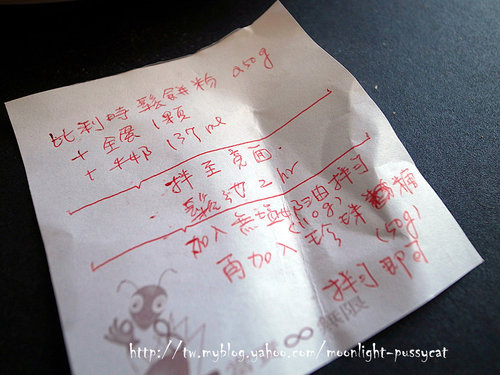 比利時鬆餅粉 250g
+ 蛋 1顆
+ 牛奶 137ml
拌至亮面.
鬆弛 2 hr
加入無鹽奶油拌勻
(110g)
再加入珍珠糖
(150g)
拌勻即可
∞ 無限
http://tw.myblog.yahoo.com/moonlight-pussycat